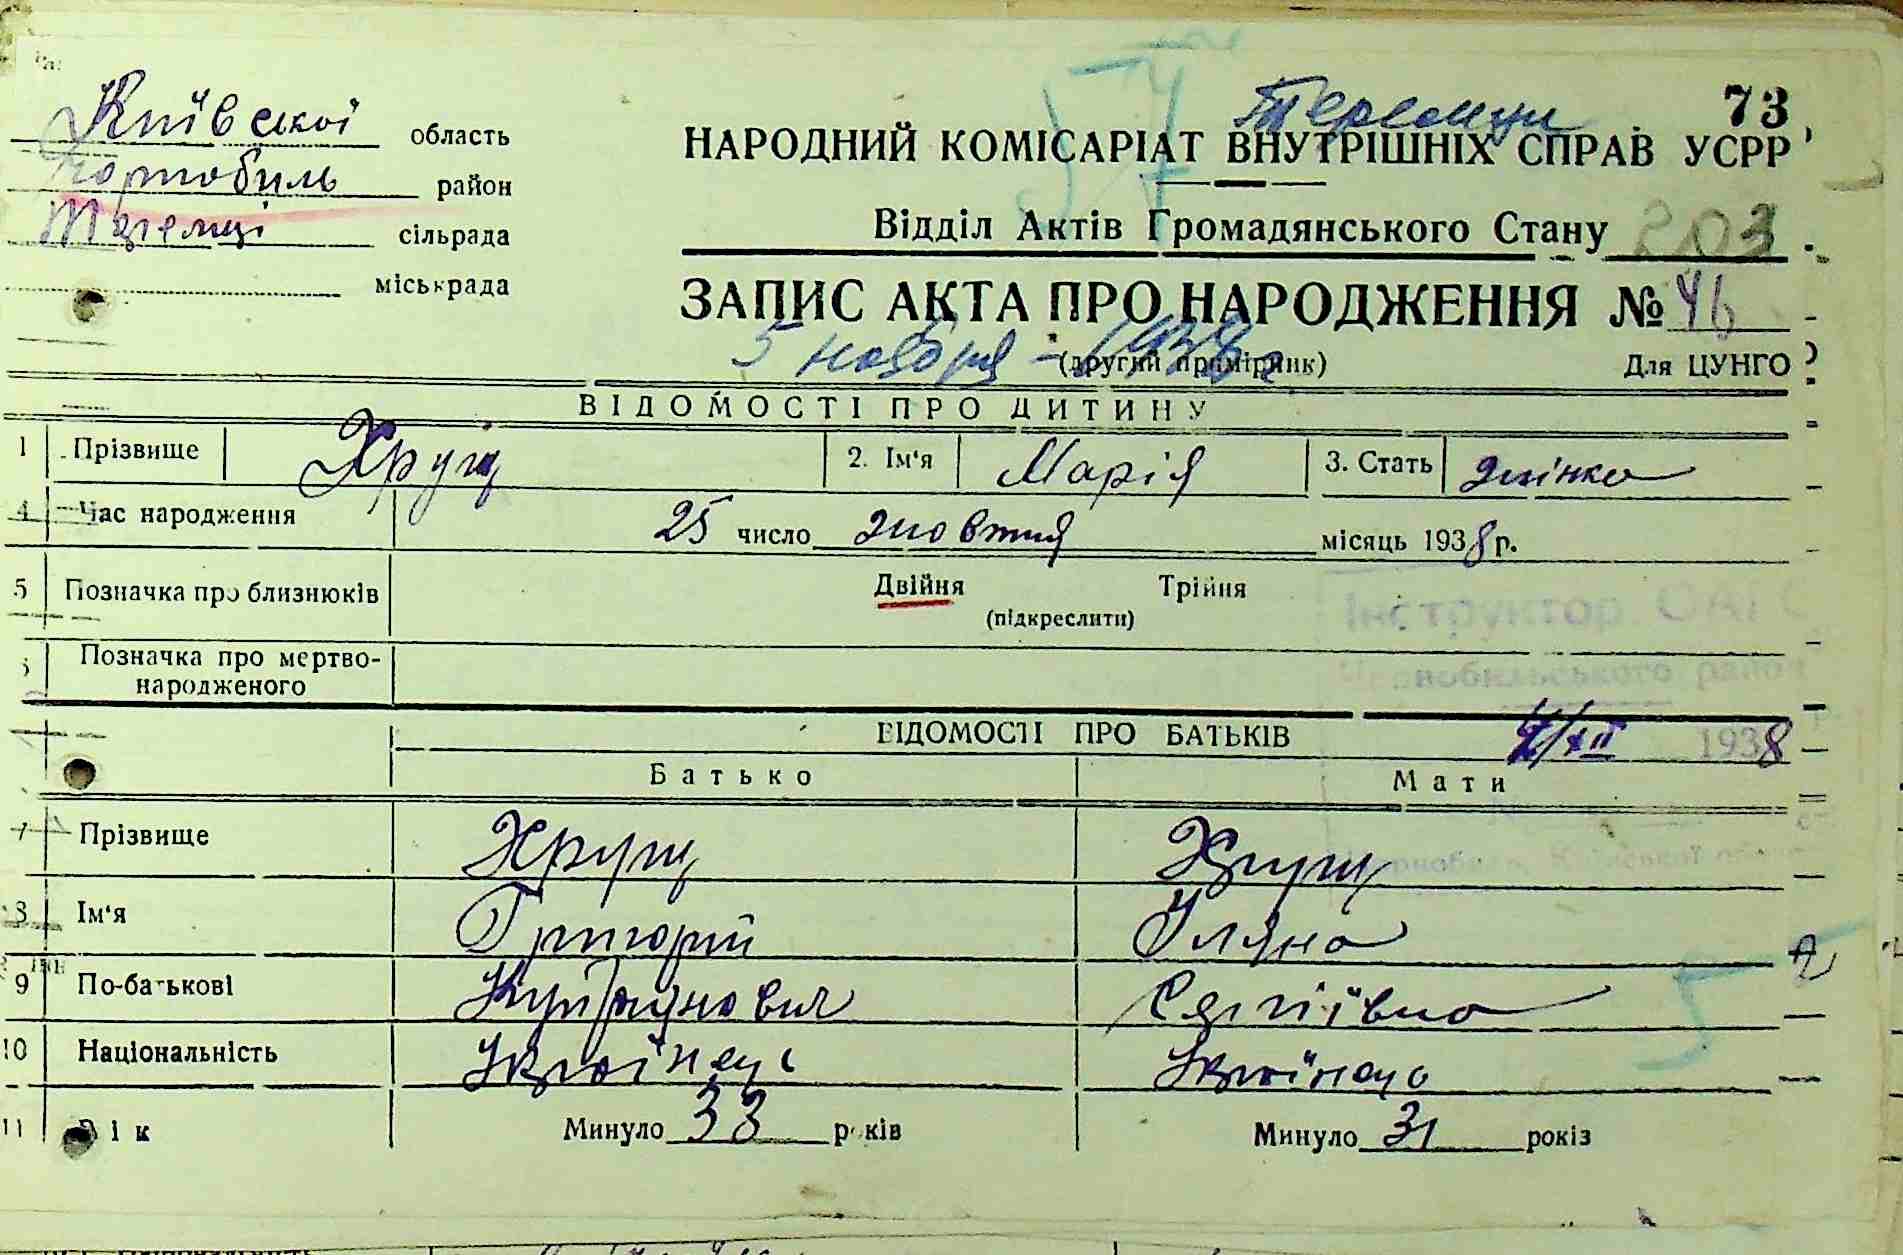 73
Київської область
Чорнобиль район
Теремці сільрада
міськрада
Теремці
НАРОДНИЙ КОМІСАРІАТ ВНУТРІШНІХ СПРАВ УСРР
57
Відділ Актів Громадянського Стану 203
ЗАПИС АКТА ПРО НАРОДЖЕННЯ № 46
5 ноября - 1938 г
(другий примірник) Для ЦУНГО
ВІДОМОСТІ ПРО ДИТИНУ
1 Прізвище Хрущ 2. Ім'я Марія 3. Стать жінка
4 Час народження 25 число жовтня місяць 1938 р.
5 Позначка про близнюків Двійня Трійня
(підкреслити)
Інструктор ОАГС
Позначка про мертво-
народженого
Чорнобильського район
ВІДОМОСТІ ПРО БАТЬКІВ
/XII 1938
Батько Мати
7 Прізвище Хрущ Хрущ
8 Ім'я Григорій Уляна
9 По-батькові Сергіївна
5
10 Національність Українець Українець
11 Вік Минуло 33 років Минуло 31 років